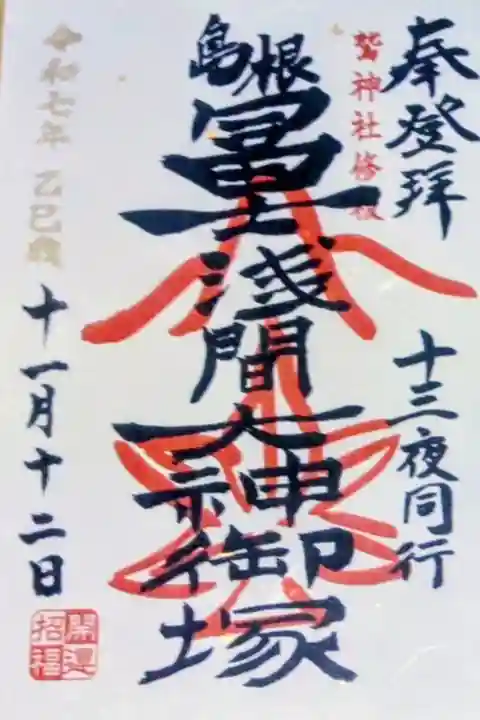 奉登拝
十三夜同行
鷲神社修復
島根
冨士浅間大神御塚
令和七年 乙巳歳
十一月十二日
開運
招福